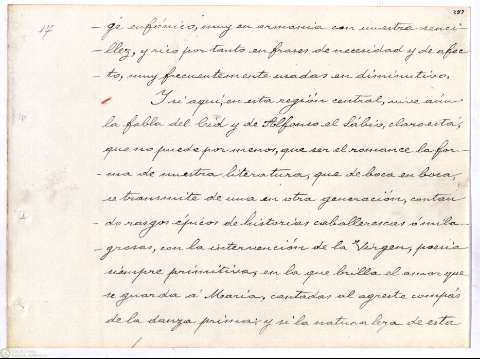 17
ge eufónico, muy en armonía con nuestra senci-
-llez, y rico por tanto en frases de necesidad y de afec-
-to, muy frecuentemente usadas en diminutivo.
Y si aquí, en esta región central, vive aún
la fabla del Cid y de Alfonso el Sábio, claro está,
que no puede por menos, que ser el romance la for-
-ma de nuestra literatura, que de boca en boca,
se transmite de una en otra generación, contan-
-do rasgos épicos de historias caballerescas ó mila-
-grosas, con la intervención de la Vergen, poesia
siempre primitiva, en la que brilla el amor que
se guarda á María, cantadas al agreste compás
de la danza prima: y si la naturaleza de esta